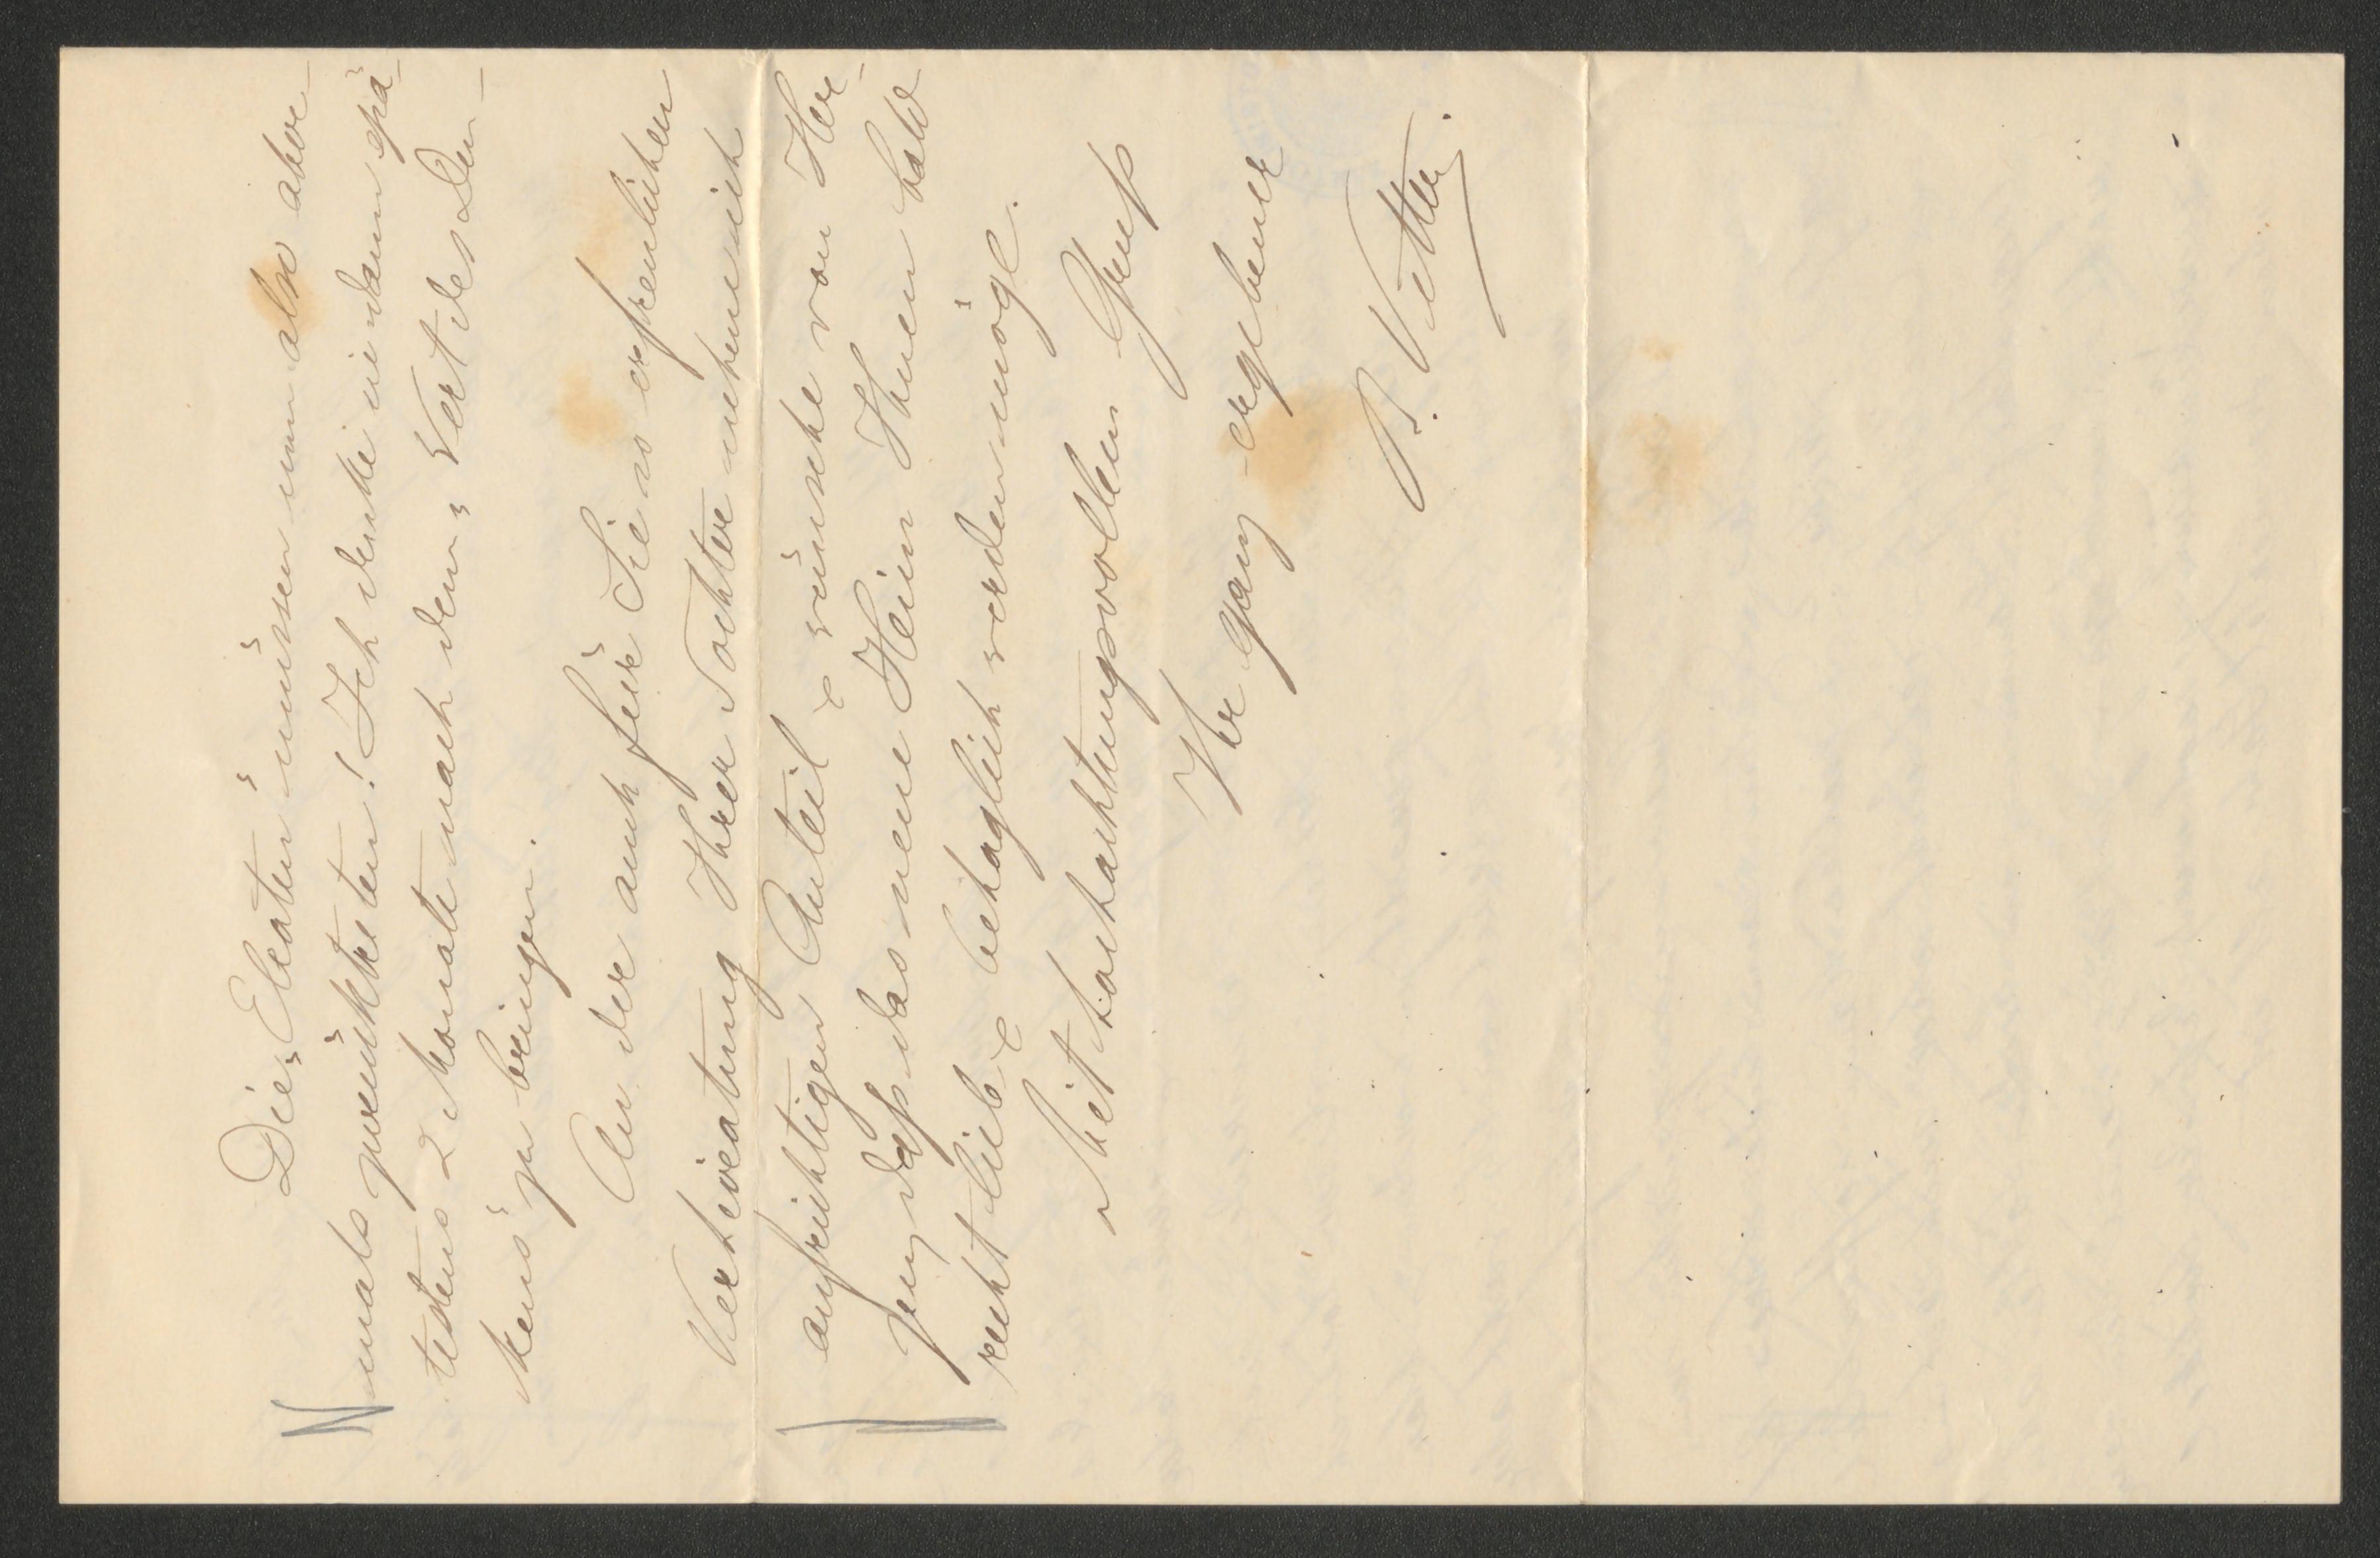 Die „Eleaten“ müssen nun also aber-
mals zurücktreten! Ich denke sie dann spä-
testens 2 Monate nach dem „Wert des Den-
kens“ zu bringen.
An der auch für Sie so erfreulichen
Verheiratung Ihrer Tochter nehme ich
aufrichtigen Anteil & wünsche von Her-
zen, daß das neue Heim Ihnen bald
recht lieb & behaglich werden möge.
Mit hochachtungsvollem Gruß
Ihr ganz ergebener
B. Vetter.